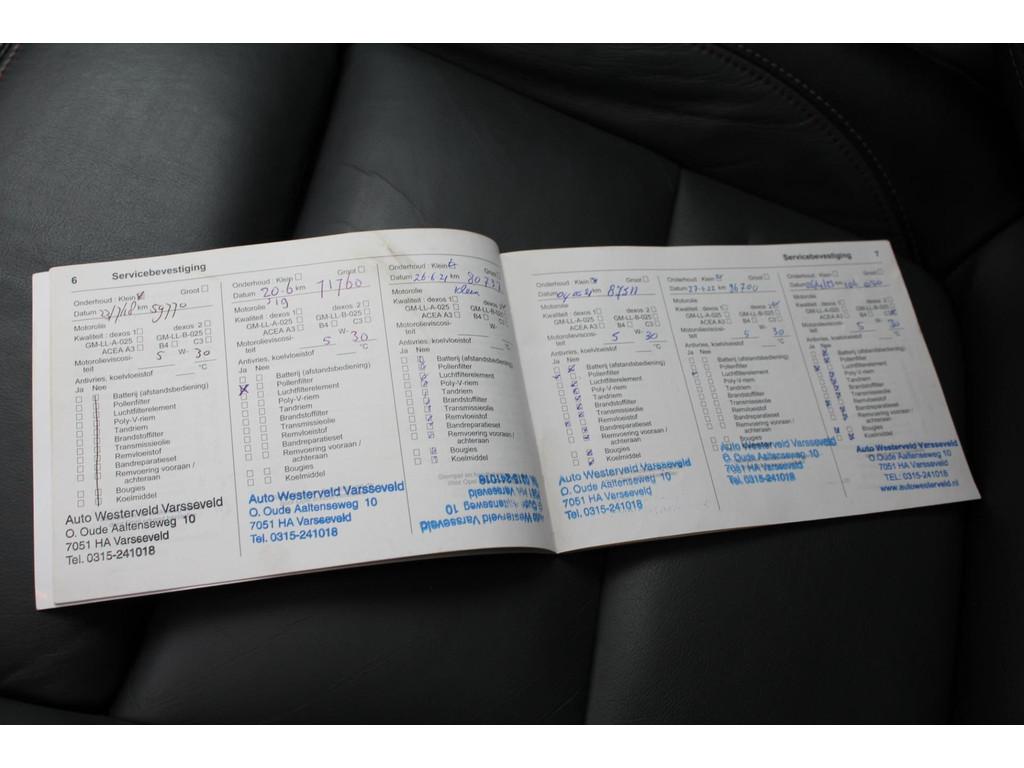 6 Servicebevestiging
Onderhoud : Klein Groot
Datum km 59770
Motorolie
Kwaliteit : dexos 1 dexos 2
GM-LL-A-025 GM-LL-B-025
ACEA A3 B4 C3
Motorolieviscosi-
teit 5 W- 30
Antivries, koelvloeistof °C
Ja Nee
Batterij (afstandsbediening)
Pollenfilter
Luchtfilterelement
Poly-V-riem
Tandriem
Brandstoffilter
Transmissieolie
Remvloeistof
Bandreparatieset
Remvoering vooraan /
achteraan
Bougies
Koelmiddel
Auto Westerveld Varsseveld
O. Oude Aaltenseweg 10
7051 HA Varsseveld
Tel. 0315-241018
Onderhoud : Klein Groot
Datum 20-6 km 71760
'19
Motorolie
Kwaliteit : dexos 1 dexos 2
GM-LL-A-025 GM-LL-B-025
ACEA A3 B4 C3
Motorolieviscosi-
teit 5 W- 30
Antivries, koelvloeistof °C
Ja Nee
Batterij (afstandsbediening)
Pollenfilter
Luchtfilterelement
Poly-V-riem
Tandriem
Brandstoffilter
Transmissieolie
Remvloeistof
Bandreparatieset
Remvoering vooraan /
achteraan
Bougies
Koelmiddel
Auto Westerveld Varsseveld
O. Oude Aaltenseweg 10
7051 HA Varsseveld
Tel. 0315-241018
Onderhoud : Klein Groot
Datum 26-6-21 km 80737
Motorolie Klein
Kwaliteit : dexos 1 dexos 2
GM-LL-A-025 GM-LL-B-025
ACEA A3 B4 C3
Motorolieviscosi-
teit 5 W- 30
Antivries, koelvloeistof °C
Ja Nee
Batterij (afstandsbediening)
Pollenfilter
Luchtfilterelement
Poly-V-riem
Tandriem
Brandstoffilter
Transmissieolie
Remvloeistof
Bandreparatieset
Remvoering vooraan /
achteraan
Bougies
Koelmiddel
Auto Westerveld Varsseveld
Oude Aaltenseweg 10
Varsseveld
0315-241018
Servicebevestiging 7
Onderhoud : Klein Groot
Datum km 87511
Motorolie
Kwaliteit : dexos 1 dexos 2
GM-LL-A-025 GM-LL-B-025
ACEA A3 B4 C3
Motorolieviscosi-
teit 5 W- 30
Antivries, koelvloeistof °C
Ja Nee
Batterij (afstandsbediening)
Pollenfilter
Luchtfilterelement
Poly-V-riem
Tandriem
Brandstoffilter
Transmissieolie
Remvloeistof
Bandreparatieset
Remvoering vooraan /
achteraan
Bougies
Koelmiddel
Auto Westerveld Varsseveld
O. Oude Aaltenseweg 10
7051 HA Varsseveld
Tel. 0315-241018
Onderhoud : Klein Groot
Datum km 96700
Motorolie
Kwaliteit : dexos 1 dexos 2
GM-LL-A-025 GM-LL-B-025
ACEA A3 B4 C3
Motorolieviscosi-
teit 5 W- 30
Antivries, koelvloeistof °C
Ja Nee
Batterij (afstandsbediening)
Pollenfilter
Luchtfilterelement
Poly-V-riem
Tandriem
Brandstoffilter
Transmissieolie
Remvloeistof
Bandreparatieset
Remvoering vooraan /
achteraan
Bougies
Auto Westerveld Varsseveld
O. Oude Aaltenseweg 10
7051 HA Varsseveld
Tel. 0315-241018
Onderhoud : Klein Groot
Datum km
Motorolie
Kwaliteit : dexos 1 dexos 2
GM-LL-A-025 GM-LL-B-025
ACEA A3 B4 C3
Motorolieviscosi-
teit 5 W- 30
Antivries, koelvloeistof °C
Ja Nee
Batterij (afstandsbediening)
Pollenfilter
Luchtfilterelement
Poly-V-riem
Tandriem
Brandstoffilter
Transmissieolie
Remvloeistof
Bandreparatieset
Remvoering vooraan /
achteraan
Bougies
Koelmiddel
Auto Westerveld Varsseveld
O. Oude Aaltenseweg 10
7051 HA Varsseveld
TEL: 0315-241018
www.autowesterveld.nl